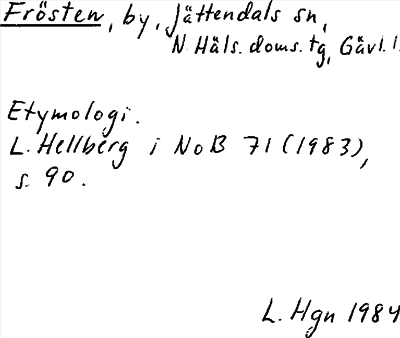 Frösten, by, Jättendals sn,
N. Häls. doms. tg, Gävl. l.
Etymologi.
L. Hellberg i NoB 71 (1983),
s. 90.
L. Hgn 1984